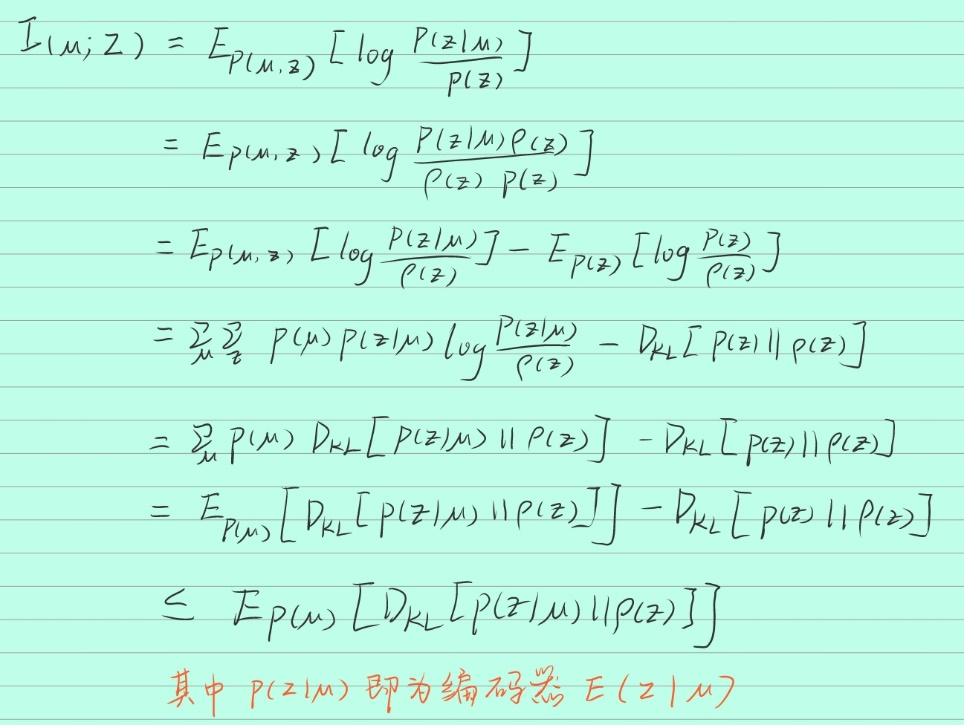 I(μ; Z) = E_{P(μ,z)} [log \frac{P(z|μ)}{p(z)}]
= E_{P(μ,z)} [log \frac{P(z|μ)ρ(z)}{ρ(z) p(z)}]
= E_{P(μ,z)} [log \frac{P(z|μ)}{ρ(z)}] - E_{P(z)} [log \frac{P(z)}{ρ(z)}]
= Σ_μ Σ_z P(μ) P(z|μ) log \frac{P(z|μ)}{ρ(z)} - D_{KL} [P(z) || ρ(z)]
= Σ_μ P(μ) D_{KL} [P(z|μ) || ρ(z)] - D_{KL} [p(z) || ρ(z)]
= E_{P(μ)} [D_{KL} [P(z|μ) || ρ(z)]] - D_{KL} [p(z) || ρ(z)]
≤ E_{P(μ)} [D_{KL} [p(z|μ) || ρ(z)]]
其中 P(z|μ) 即为编码器 E(z|μ)